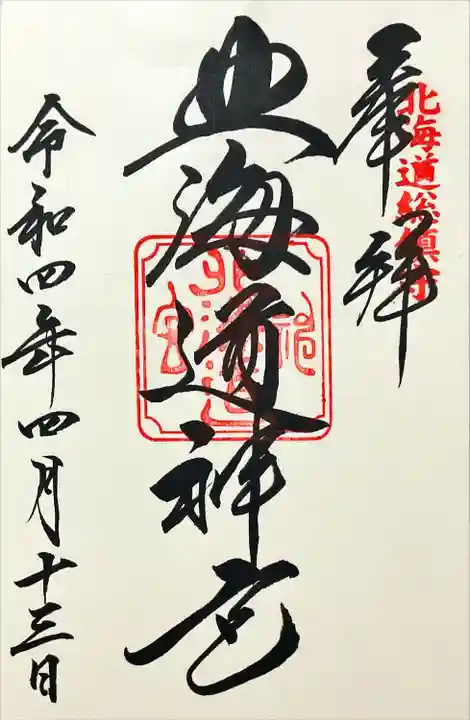 奉拝
北海道総鎮守
北海道神宮
北海道
神
宮
令和四年四月十三日